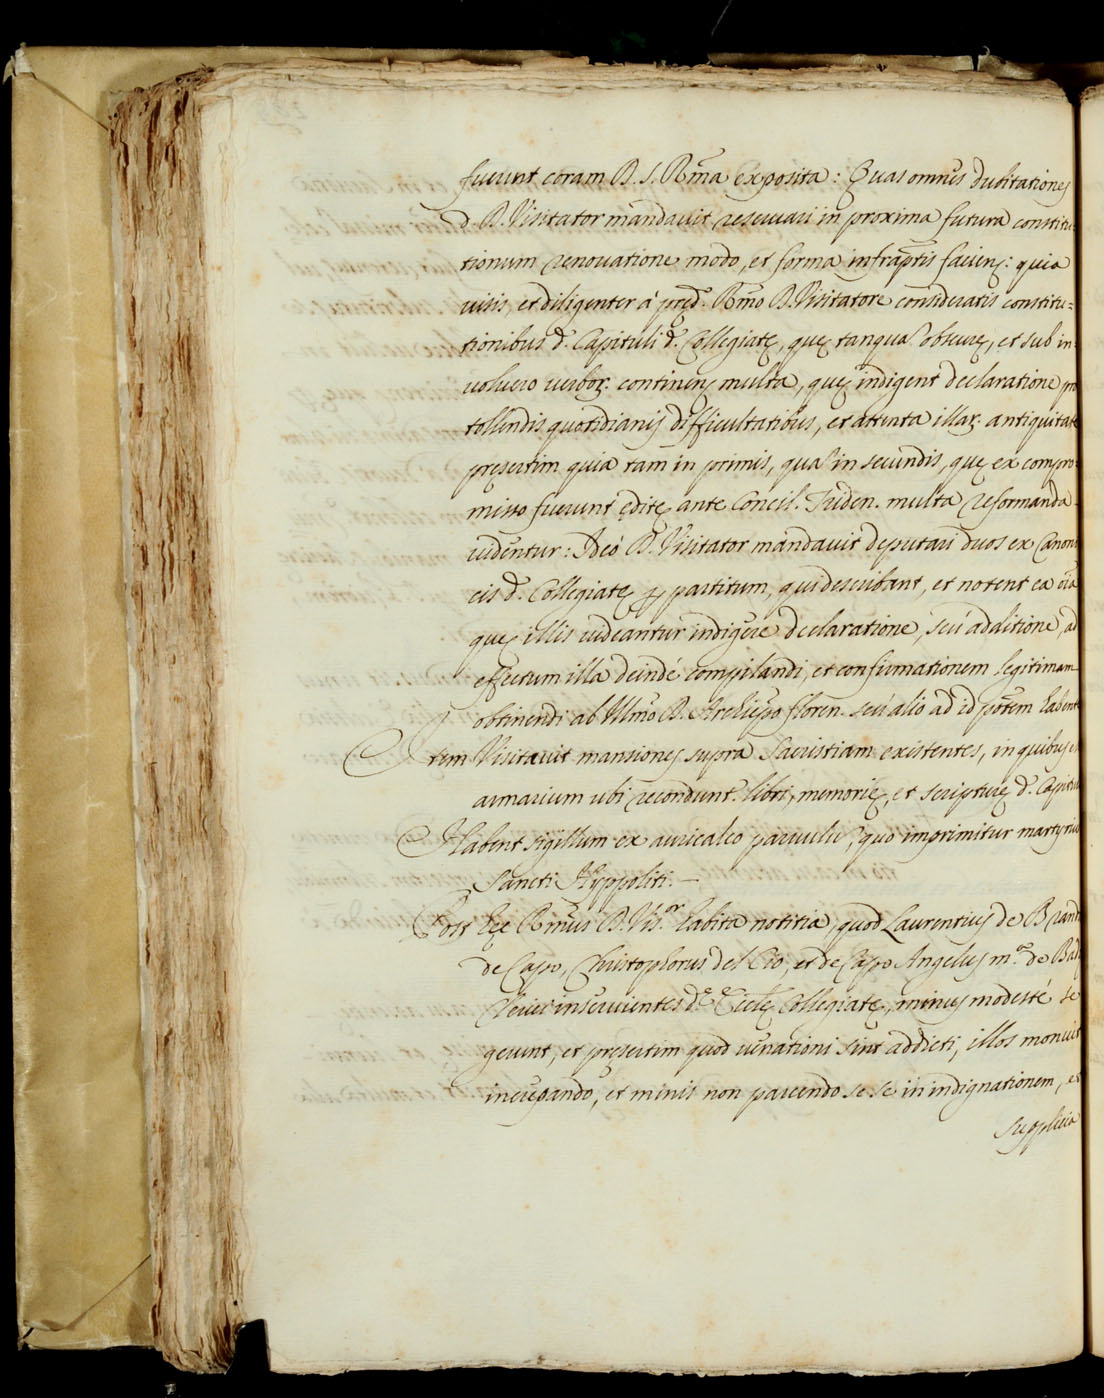 fuerunt coram D. S. R̃ma exposita: Quas omnes dubitationes
d. D. Visitator mandavit reservari in proxima futura constitu-
tionum renovatione modo, et forma infraptis facien: quia
visis, et diligenter à pred. Rmo D. Visitatore consideratis constitu=
tionibus d. Capituli d. Collegiatę, quę tanqua obscurę, et sub in-
volucro verbor. continen multa, quę indigent declaratione pro
tollendis quotidianis difficultatibus, et attenta illar. antiquitate
pręsertim quia tam in primis, qua in secundis, quę ex compro-
misso fuerunt editę ante Concil. Triden. multa reformanda
videntur: Ideò D. Visitator mandavit deputari duos ex Canoni
cis d. Collegiatę p partitum, qui describant, et notent ea oia
quę illis videantur indigere declaratione, seù additione, ad
effectum illa deindè compilandi, et confirmationem legitimam
obtinendi ab Illmo D. Archiepo floren. seù alio ad id ptem habent
Item Visitavit mansiones supra Sacristiam existentes, in quibus est
armarium ubi recondunt. libri, memorię, et scripturę d. Capituli
Habent sigillum ex auricalco parvulu, quo imprimitur martyrium
Sancti Hyppoliti. —
Post hęc Rmus D. Vis.r habita notitia, quod Laurentius de Brand
de Capo, Christophorus del Cio, et de Capo Angelus m. de Bad
Clerici inservientes d. Eccle Collegiatę, minus modestè se
gerunt, et presertim quod venationi sint addicti, illos monuit
increpando, et minis non parcendo se se in indignationem, et
supplicia